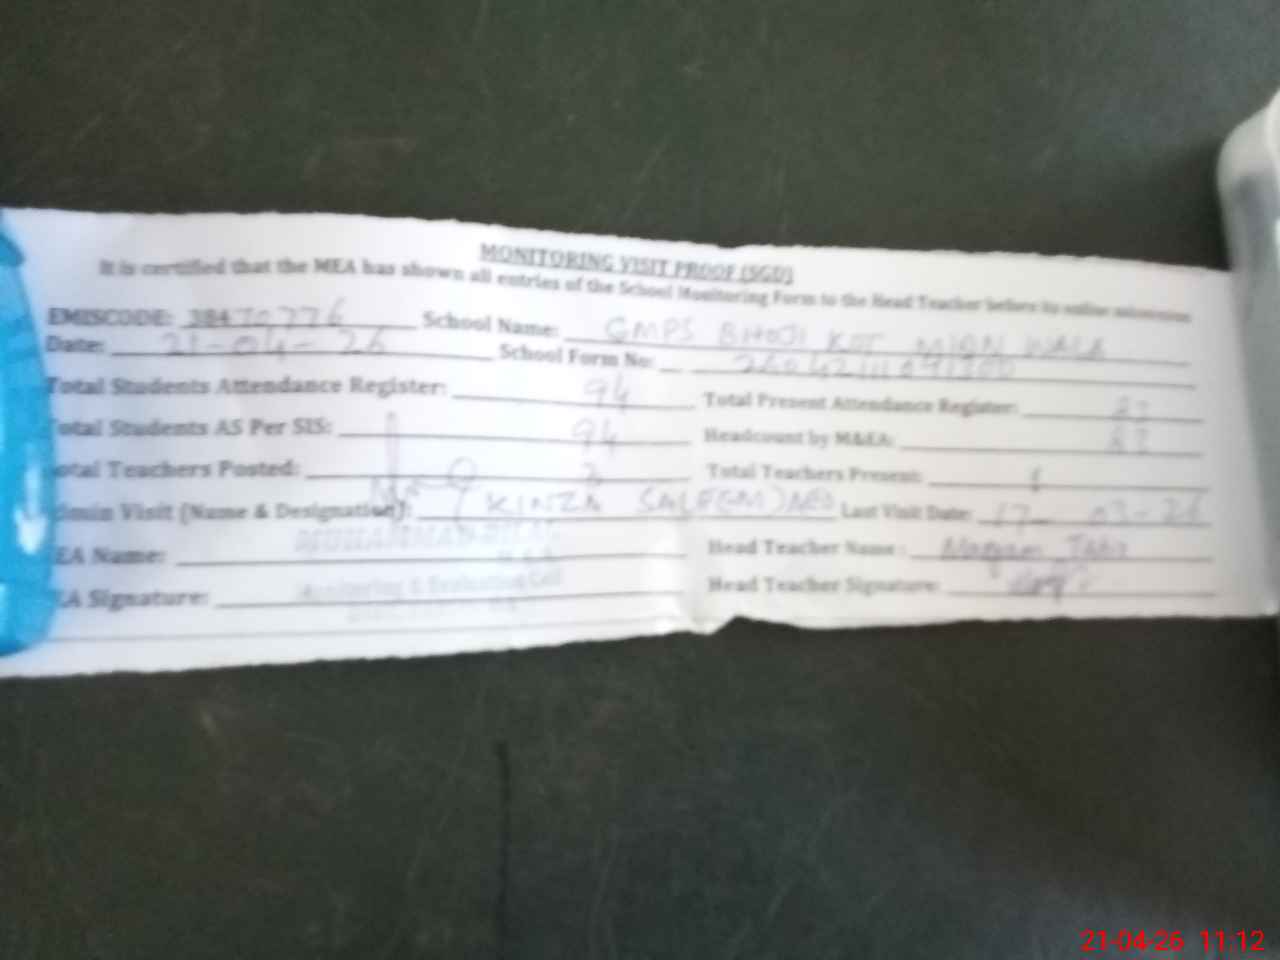 MONITORING VISIT PROOF (SGD)
It is certified that the MEA has shown all entries of the School Monitoring Form to the Head Teacher before its online submission
EMISCODE: 38470776 School Name: GMPS BHOJI KOT MIAN WALA
Date: 21-04-26 School Form No:
Total Students Attendance Register: 94 Total Present Attendance Register:
Total Students AS Per SIS: 94 Headcount by M&EA:
otal Teachers Posted: 2 Total Teachers Present: 1
dmin Visit (Name & Designation): (KINZA SALEEM) AEO Last Visit Date: 17-03-26
EA Name: MUHAMMAD Head Teacher Name:
EA Signature: Monitoring & Evaluation Cell Head Teacher Signature:
21-04-26 11:12